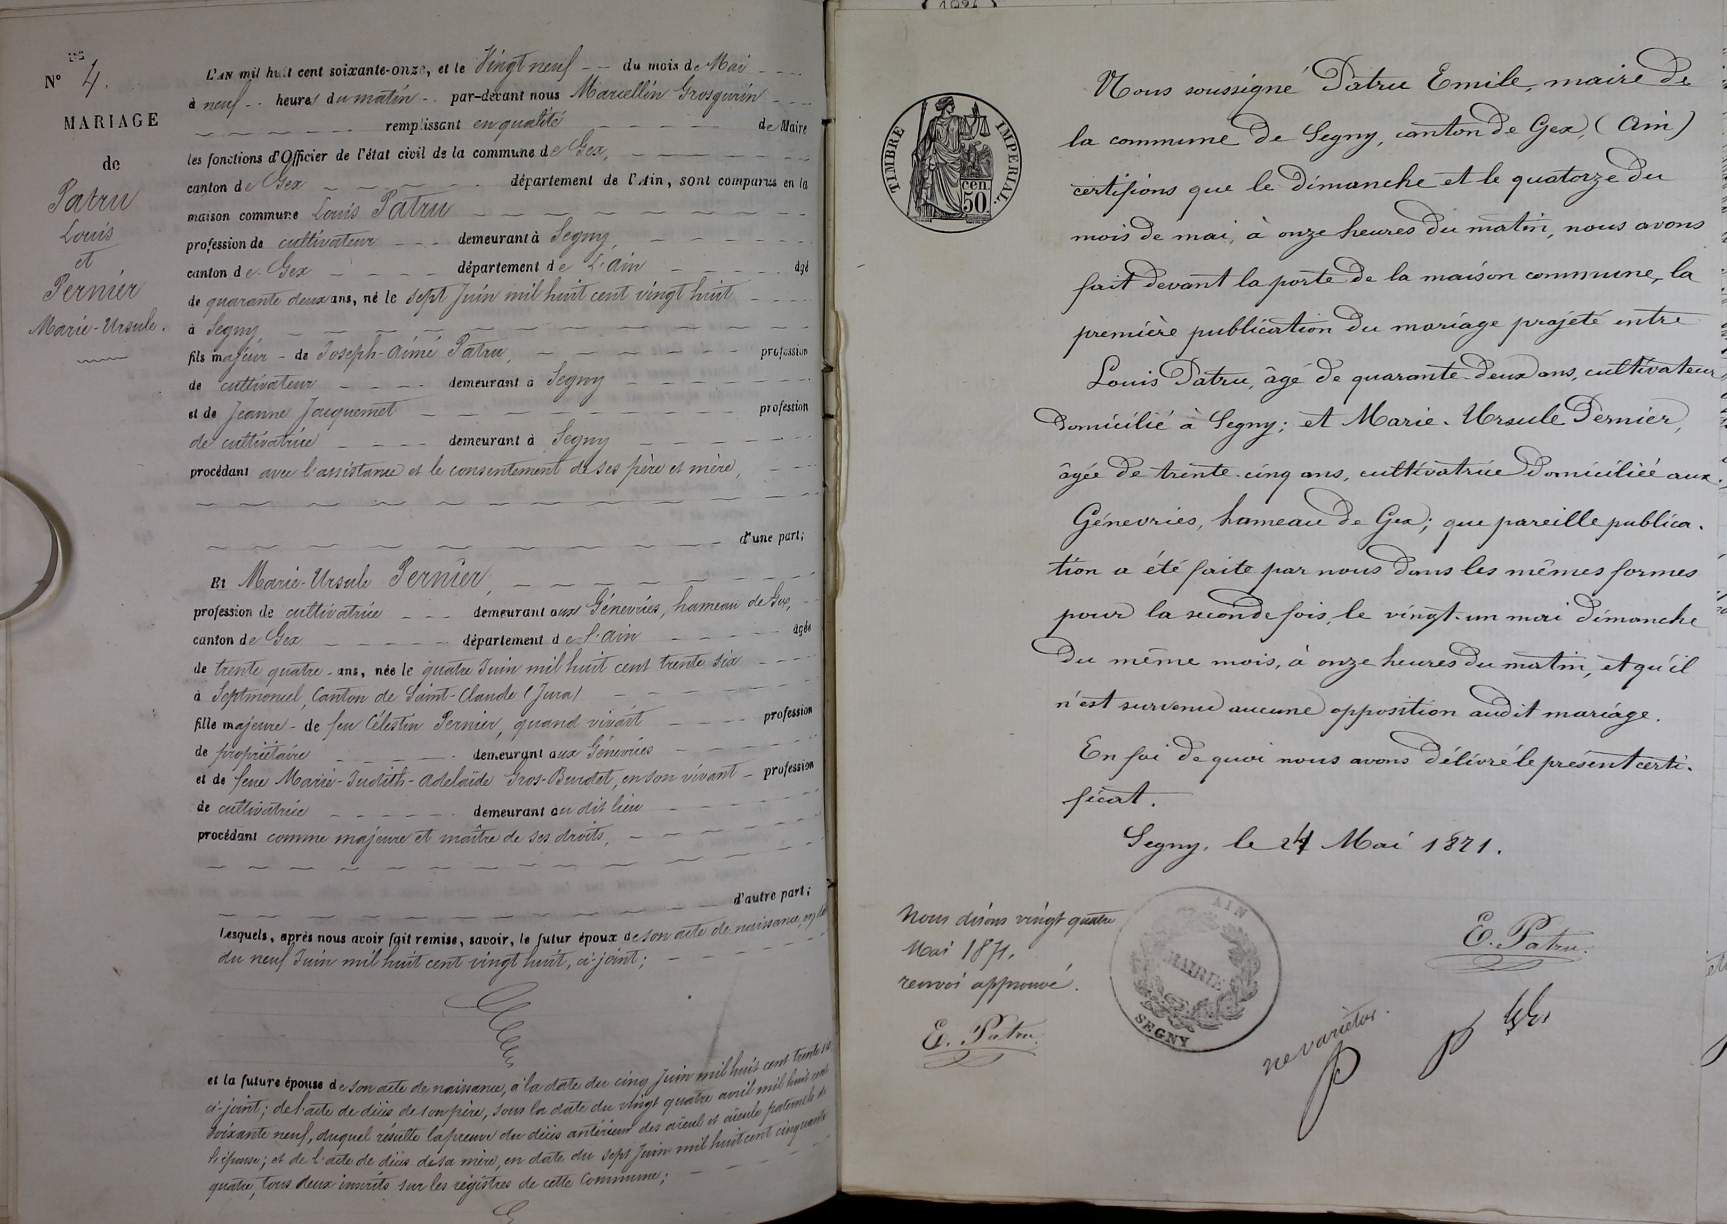 N° 4.
MARIAGE
de
Patru
Louis
et
Pernier
Marie-Ursule.
L'AN mil huit cent soixante-onze, et le Vingt neuf du mois de Mai
à neuf heures du matin par-devant nous Marcellin Grosgurin
remplissant en qualité de Maire
les fonctions d'Officier de l'état civil de la commune de Gex,
canton de Gex département de l'Ain, sont comparus en la
maison commune Louis Patru
profession de cultivateur demeurant à Segny,
canton de Gex département de L'Ain âgé
de quarante deux ans, né le sept Juin mil huit cent vingt huit
à Segny
fils majeur de Joseph-Aimé Patru, profession
de cultivateur demeurant à Segny
et de Jeanne Jacquemet profession
de cultivatrice demeurant à Segny
procédant avec l'assistance et le consentement de ses père et mère,
d'une part;
Et Marie-Ursule Pernier,
profession de cultivatrice demeurant aux Génevries, hameau de Gex,
canton de Gex département de l'Ain âgée
de trente quatre ans, née le quatre Juin mil huit cent trente six
à Septmoncel, Canton de Saint-Claude (Jura)
fille majeure de feu Célestin Pernier, quand vivait profession
de propriétaire demeurant aux Génevries
et de feue Marie-Judith-Adelaïde Gros-Burdet, en son vivant profession
de cultivatrice demeurant au dit lieu
procédant comme majeure et maître de ses droits,
d'autre part;
Lesquels, après nous avoir fait remise, savoir, le futur époux de son acte de naissance, en date
du neuf Juin mil huit cent vingt huit, ci-joint;
et la future épouse de son acte de naissance, à la date du cinq Juin mil huit cent trente six
ci-joint; de l'acte de décès de son père, sous la date du vingt quatre avril mil huit cent
soixante neuf, duquel résulte la preuve du décès antérieur des aïeul et aïeule paternels de
l'épouse; et de l'acte de décès de sa mère, en date du sept Juin mil huit cent cinquante
quatre, tous deux inscrits sur les registres de cette Commune;
TIMBRE IMPERIAL.
50 cen
Nous soussigné Patru Emile, maire de
la commune de Segny, canton de Gex, (Ain)
certifions que le Dimanche et le quatorze du
mois de mai, à onze heures du matin, nous avons
fait devant la porte de la maison commune, la
première publication du mariage projeté entre
Louis Patru, âgé de quarante-deux ans, cultivateur
domicilié à Segny; et Marie-Ursule Pernier,
âgée de trente-cinq ans, cultivatrice domiciliée aux
Génevries, hameau de Gex; que pareille publica-
tion a été faite par nous dans les mêmes formes
pour la seconde fois, le vingt-un mai dimanche
du même mois, à onze heures du matin, et qu'il
n'est survenu aucune opposition audit mariage.
En foi de quoi nous avons délivré le présent certi-
ficat.
Segny, le 24 Mai 1871.
Nous disons vingt quatre
Mai 1871.
renvoi approuvé.
E. Patru.
AIN
MAIRIE
SEGNY
E. Patru.
ne varietur.